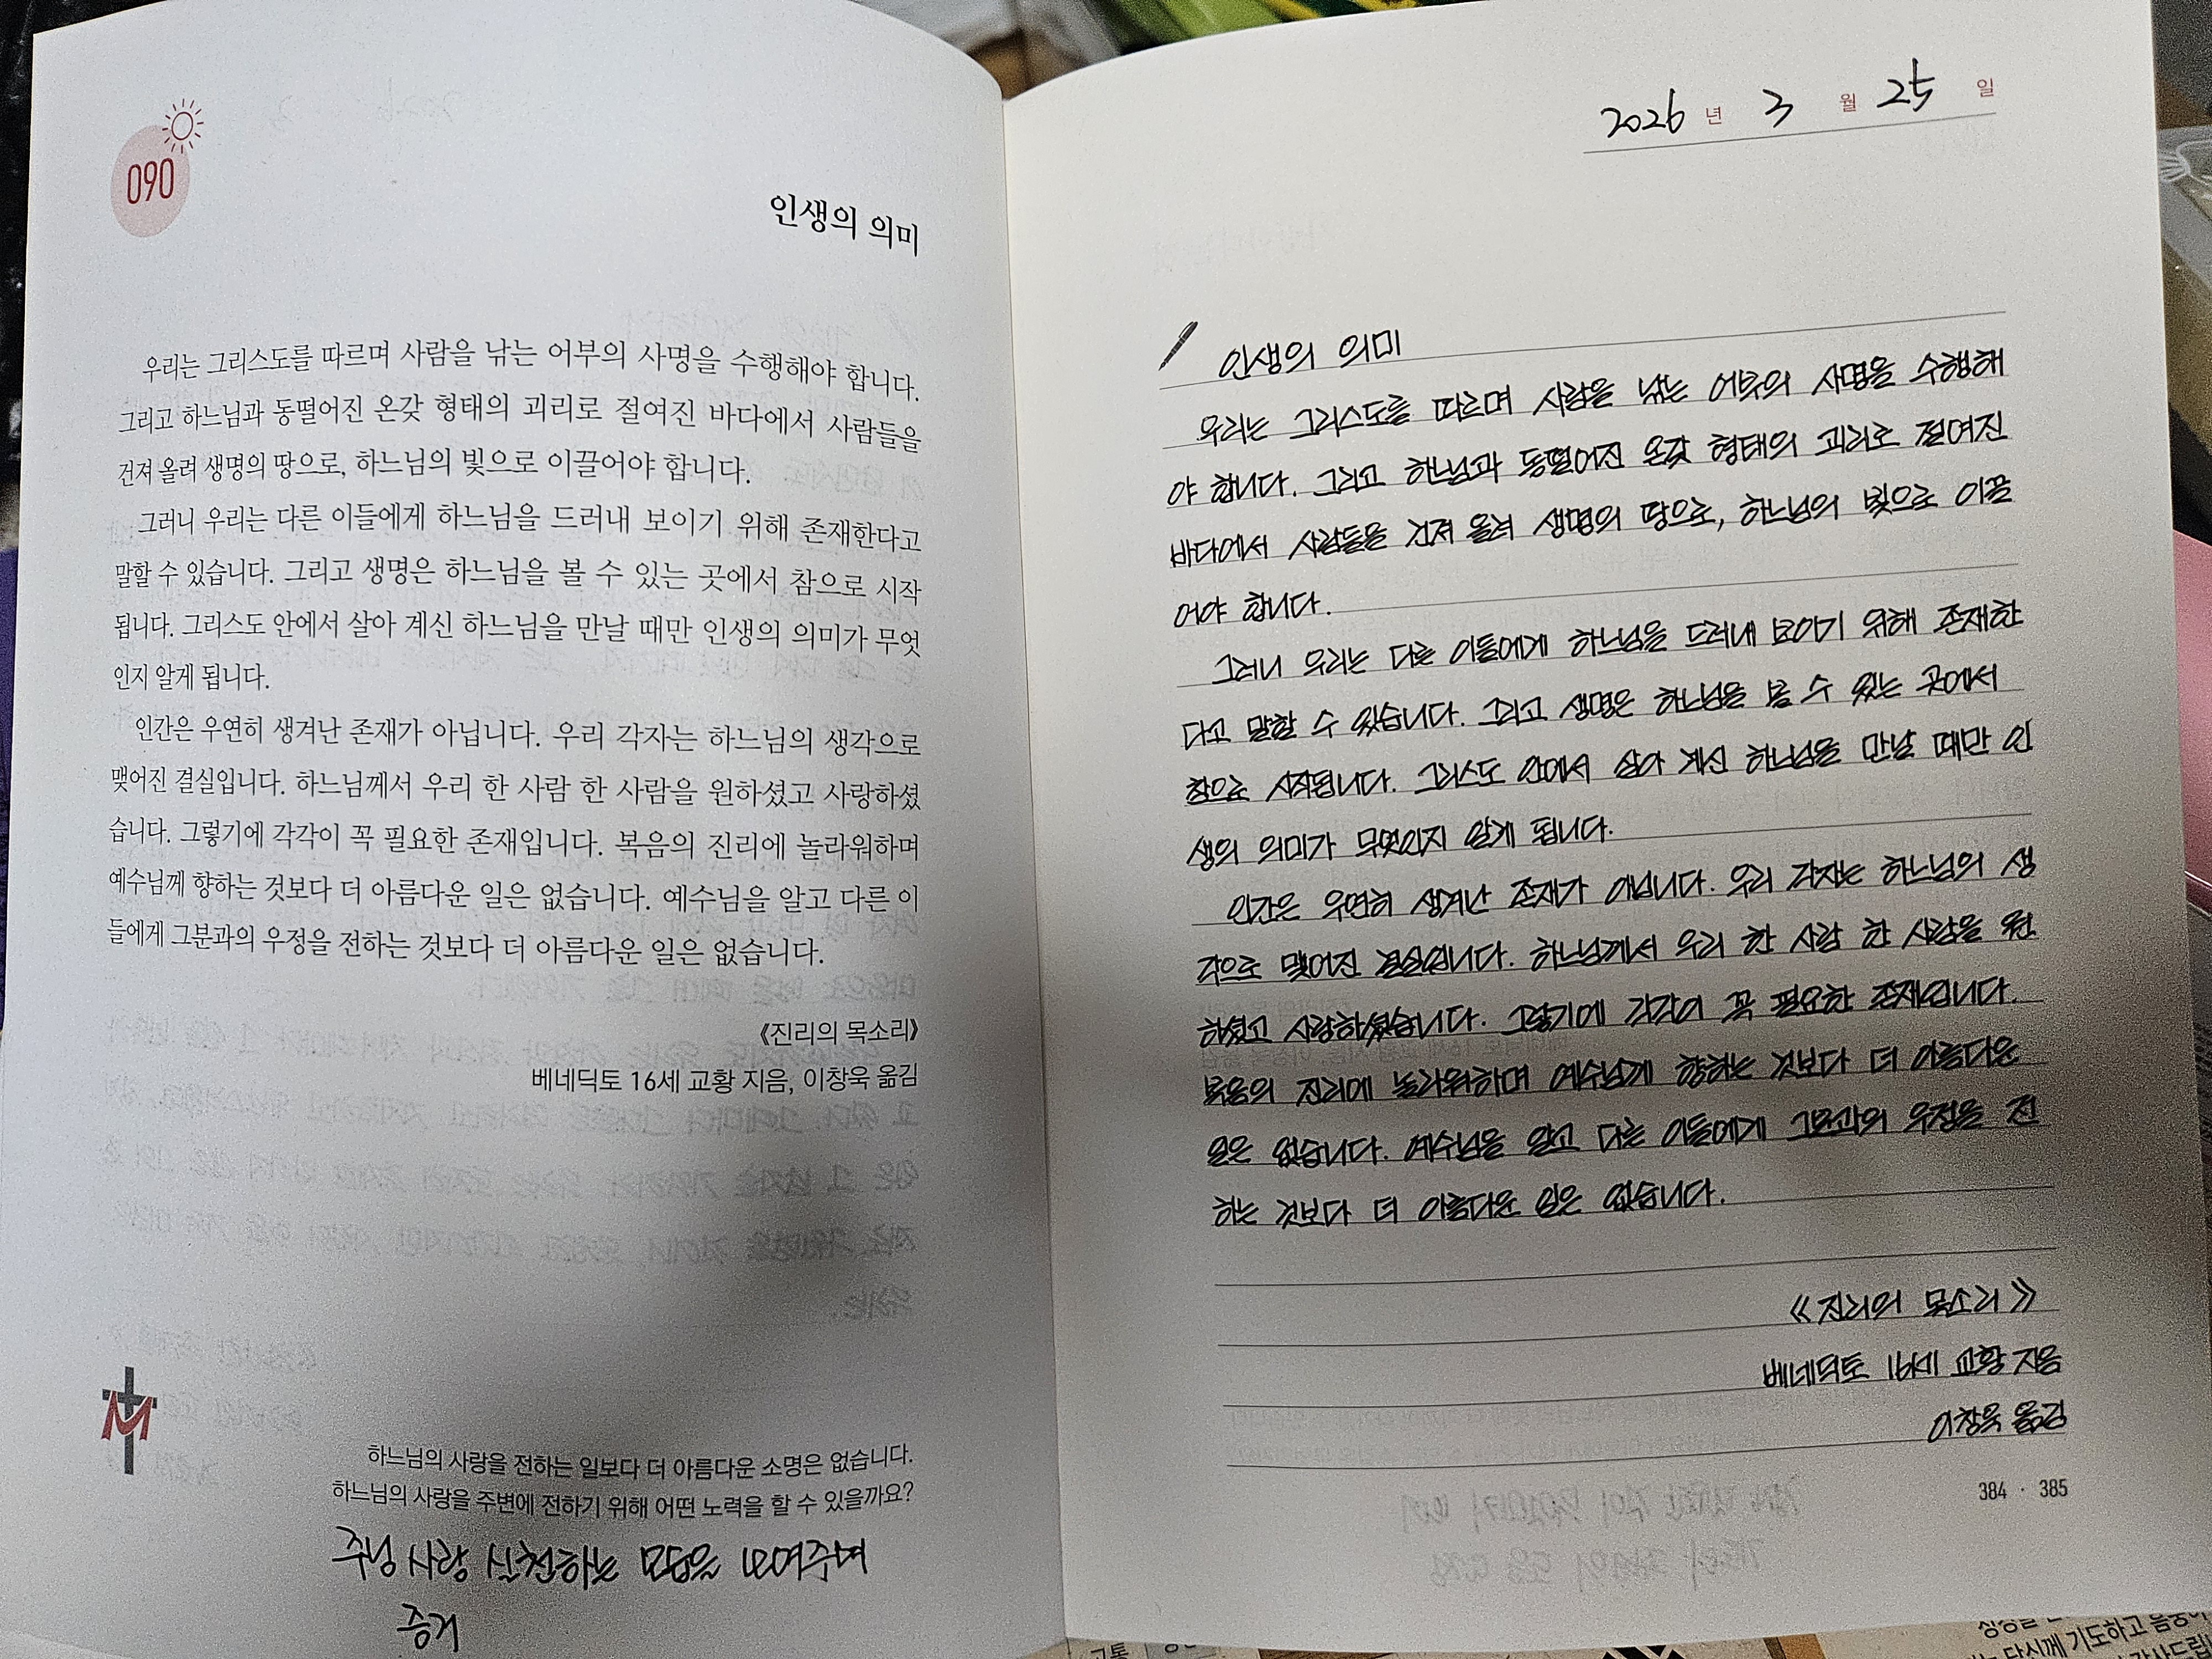 090
인생의 의미
우리는 그리스도를 따르며 사람을 낚는 어부의 사명을 수행해야 합니다.
그리고 하느님과 동떨어진 온갖 형태의 괴리로 절여진 바다에서 사람들을
건져 올려 생명의 땅으로, 하느님의 빛으로 이끌어야 합니다.
그러니 우리는 다른 이들에게 하느님을 드러내 보이기 위해 존재한다고
말할 수 있습니다. 그리고 생명은 하느님을 볼 수 있는 곳에서 참으로 시작
됩니다. 그리스도 안에서 살아 계신 하느님을 만날 때만 인생의 의미가 무엇
인지 알게 됩니다.
인간은 우연히 생겨난 존재가 아닙니다. 우리 각자는 하느님의 생각으로
맺어진 결실입니다. 하느님께서 우리 한 사람 한 사람을 원하셨고 사랑하셨
습니다. 그렇기에 각각이 꼭 필요한 존재입니다. 복음의 진리에 놀라워하며
예수님께 향하는 것보다 더 아름다운 일은 없습니다. 예수님을 알고 다른 이
들에게 그분과의 우정을 전하는 것보다 더 아름다운 일은 없습니다.
《진리의 목소리》
베네딕토 16세 교황 지음, 이창욱 옮김
M
하느님의 사랑을 전하는 일보다 더 아름다운 소명은 없습니다.
하느님의 사랑을 주변에 전하기 위해 어떤 노력을 할 수 있을까요?
주님 사랑 실천하는 모습을 보여주며
증거
2026 년 3 월 25 일
인생의 의미
우리는 그리스도를 따르며 사람을 낚는 어부의 사명을 수행해
야 합니다. 그리고 하느님과 동떨어진 온갖 형태의 괴리로 절여진
바다에서 사람들을 건져 올려 생명의 땅으로, 하느님의 빛으로 이끌
어야 합니다.
그러니 우리는 다른 이들에게 하느님을 드러내 보이기 위해 존재한
다고 말할 수 있습니다. 그리고 생명은 하느님을 볼 수 있는 곳에서
참으로 시작됩니다. 그리스도 안에서 살아 계신 하느님을 만날 때만 인
생의 의미가 무엇인지 알게 됩니다.
인간은 우연히 생겨난 존재가 아닙니다. 우리 각자는 하느님의 생
각으로 맺어진 결실입니다. 하느님께서 우리 한 사람 한 사람을 원
하셨고 사랑하셨습니다. 그렇기에 각각이 꼭 필요한 존재입니다.
복음의 진리에 놀라워하며 예수님께 향하는 것보다 더 아름다운
일은 없습니다. 예수님을 알고 다른 이들에게 그분과의 우정을 전
하는 것보다 더 아름다운 일은 없습니다.
《진리의 목소리》
베네딕토 16세 교황 지음
이창욱 옮김
384 · 385
당신께 기도하고